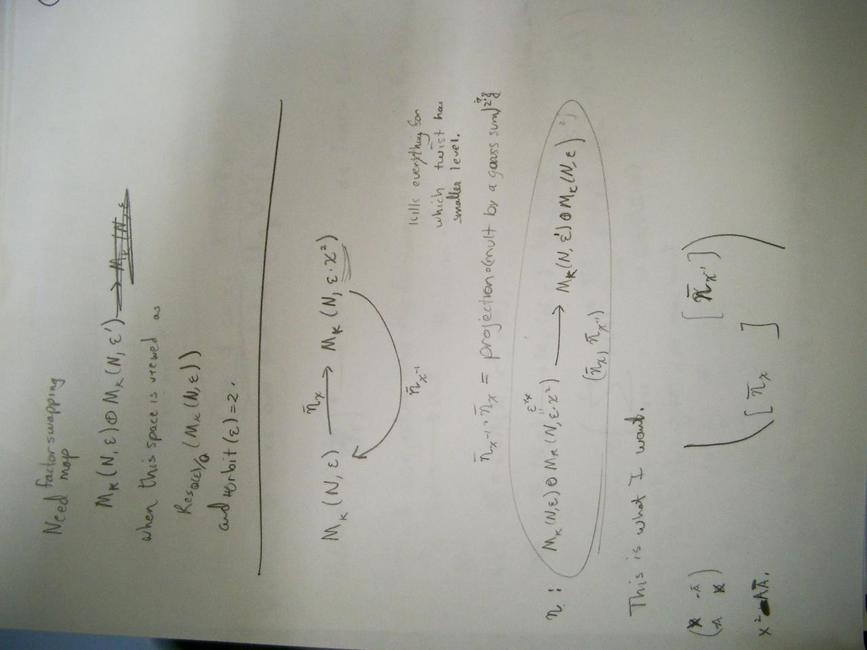 Need factor swapping
map
M_k(N, ε) ⊕ M_k(N, ε') → M_k(N, ε
when this space is viewed as
Res_Q(ε)/Q (M_k(N, ε))
and #orbit(ε) = 2.
M_k(N, ε) —η̄_χ→ M_k(N, ε·χ²)
η̄_χ⁻¹
kills everything for
which twist has
smaller level.
η̄_χ⁻¹ ∘ η̄_χ = projection ∘ (mult by a gauss sum)
η : M_k(N, ε) ⊕ M_k(N, ε·χ²) → M_k(N, ε') ⊕ M_k(N, ε)
(η̄_χ, η̄_χ⁻¹)
This is what I want.
( [η̄_χ⁻¹]
[η̄_χ] )
(x -Ā
-A x)
x² - AĀ.